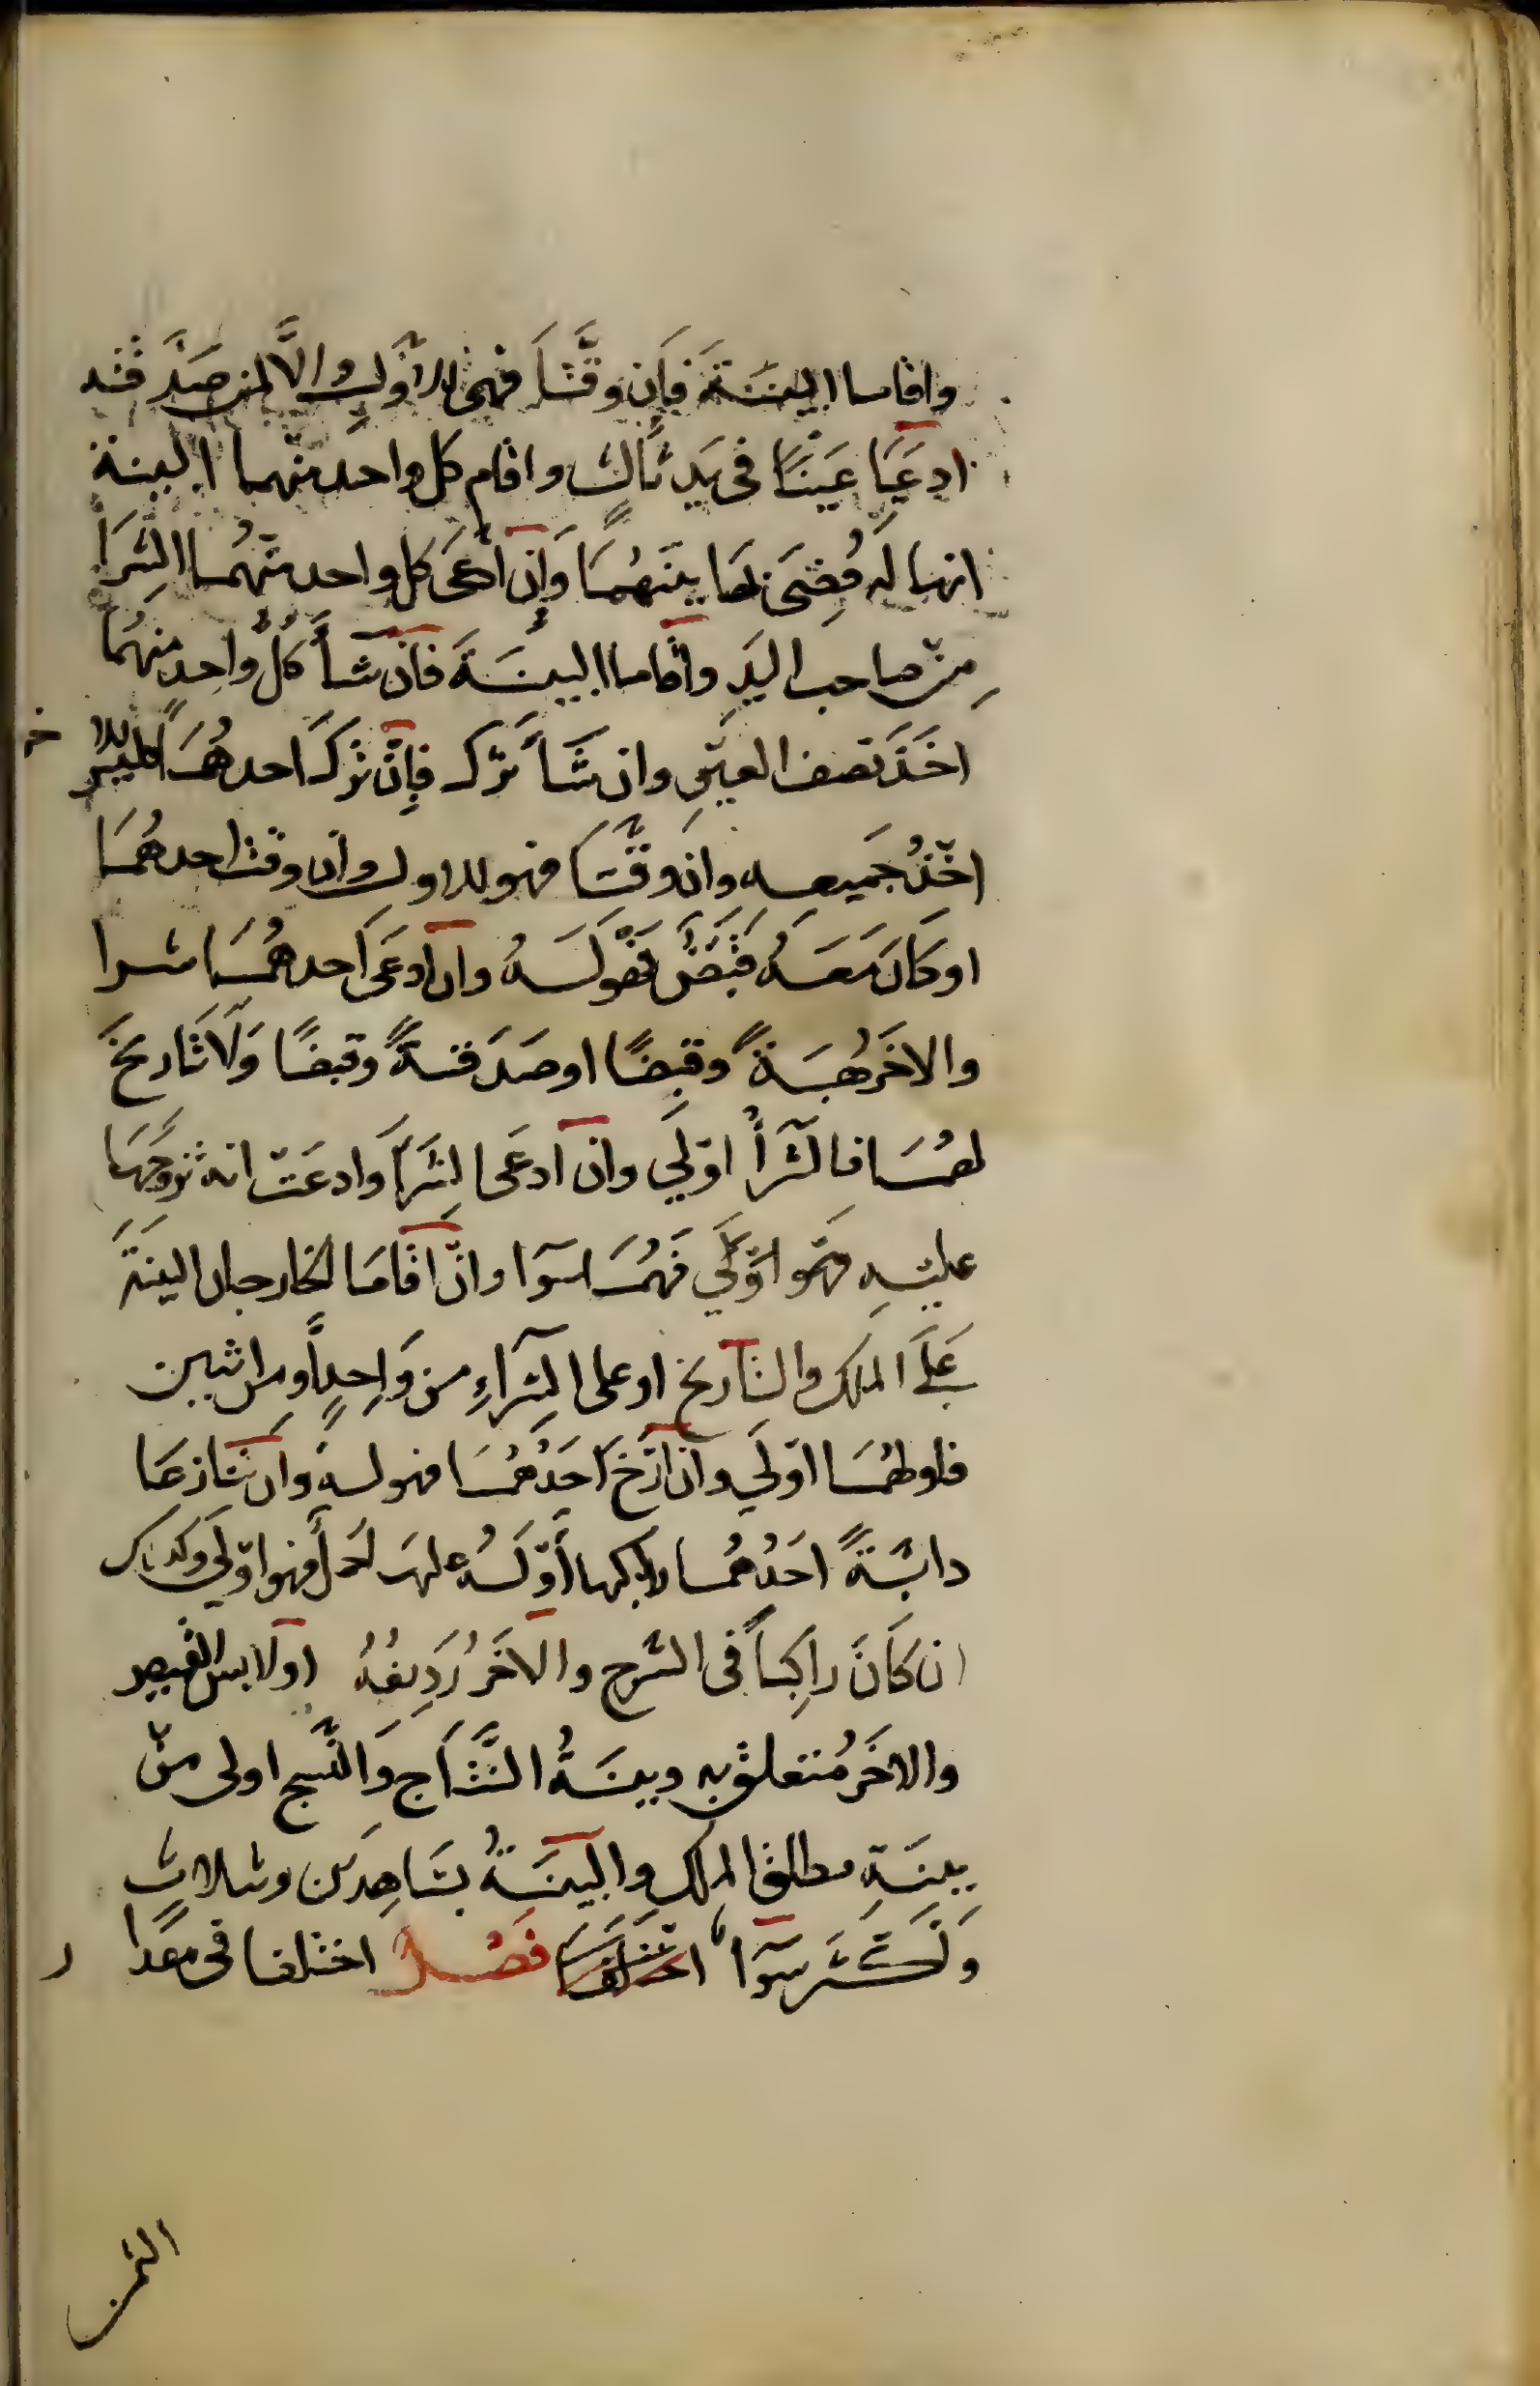 واقاما البينة فَاِن وقَّتا فهى للاوَّل والَّا لمن صدقته
ادعَيَا عَينًا فى يَد ثالث واقام كل واحد منهما البينة
انها له قُضِىَ بها بينَهُمَا وَاِن ادَّعَى كل واحد منهُما الشِرَا
مِن صاحب اليَدِ واقاما البينَةَ فان شَأَ كُلُّ واحِدٍ منهُمَا
اخَذَ نصف العينِ وان شَأَ تَرَك فاِن تَرَكَ احدهُمَا ليس للاخر
اخْذُ جَميعه وان وقَّتَا فهو للاول وان وقت احدهُمَا
او كَانَ مَعَهُ قَبْضٌ فَهْوَ لَهُ وان ادعَى احدهُمَا شرا
والاخَرُ هِبَةً وقبضًا او صَدَقةً وقبضًا وَلَا تَاريخَ
لهُمَا فالشرَأُ اوْلَى وان ادعَى الشِرَأَ وادعَت انه تَزوجَهَا
عليْهِ فَهُمَا سوا وان اقَامَا الخارجان البينَةَ
عَلَى الملك والتاريخ او على الشِرَاءِ من وَاحِدٍ او من اثنين
فاولهُمَا اوْلَى وان ارَّخَ احَدُهُمَا فهو له وان تَنَازعَا
دابَّةً احَدُهُمَا راكبها اَوْ لَهُ عليها حملٌ فهو اوْلَى وكذلك
ان كَانَ راكِبًا فى السَرج والاخَرُ رَدِيفُهُ او لابس القميص
والاخَرُ مُتعلق به وبينَةُ النَّتَاج وَالنَّسج اولى من
بينَةِ مطلق الملك والبينَةُ بشَاهِدَين وثلاثٍ
وَاَكْثَرَ سوَأ فَصْلٌ اختلفا فى مقدار
الثمن